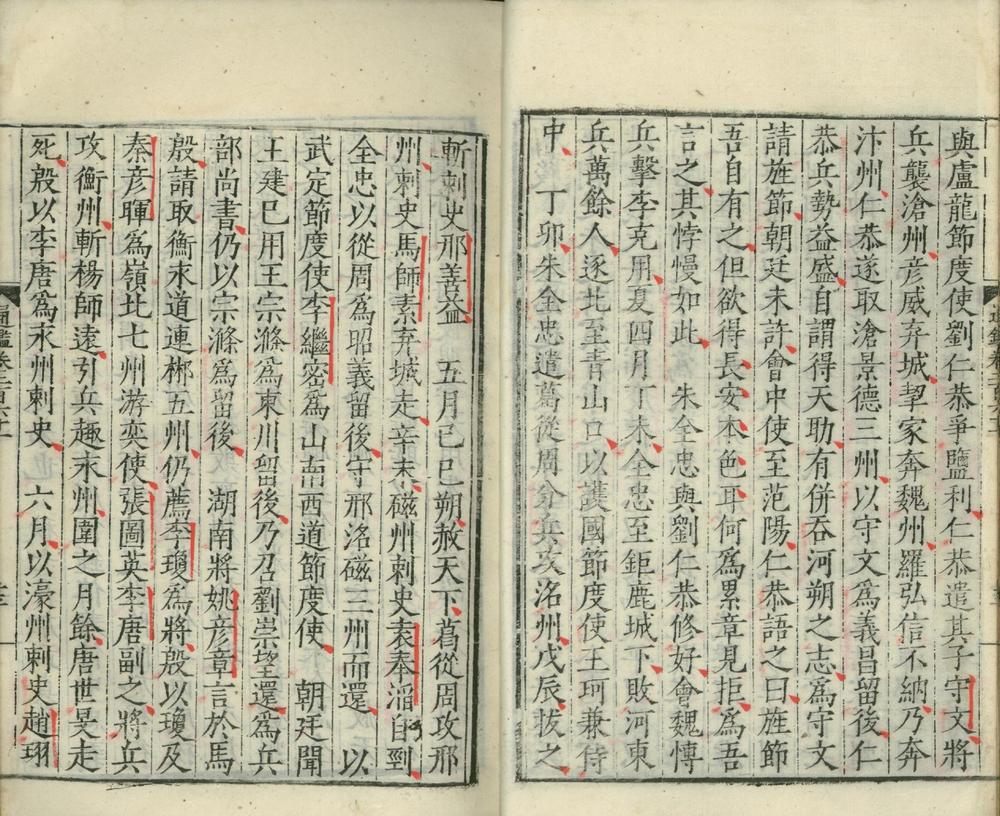 與盧龍節度使劉仁恭爭鹽利仁恭遣其子守文將
兵襲滄州彦威弃城挈家奔魏州羅弘信不納乃奔
汴州仁恭遂取滄景德三州以守文爲義昌留後仁
恭兵勢益盛自謂得天助有併吞河朔之志爲守文
請旌節朝廷未許會中使至范陽仁恭語之曰旌節
吾自有之但欲得長安本色耳何爲累章見拒爲吾
言之其悖慢如此 朱全忠與劉仁恭修好會魏愽
兵擊李克用夏四月丁未全忠至鉅鹿城下敗河東
兵萬餘人逐北至青山口以護國節度使王珂兼侍
中 丁卯朱全忠遣葛從周分兵攻洺州戊辰拔之
斬刺史邢善益 五月己巳朔赦天下葛從周攻邢
州刺史馬師素弃城走辛未磁州刺史袁奉滔自剄
全忠以從周爲昭義留後守邢洺磁三州而還 以
武定節度使李繼密爲山南西道節度使 朝廷聞
王建已用王宗滌爲東川留後乃召劉崇望還爲兵
部尚書仍以宗滌爲留後 湖南將姚彦章言於馬
殷請取衡永道連郴五州仍薦李瓊爲將殷以瓊及
秦彦暉爲嶺北七州游奕使張圖英李唐副之將兵
攻衡州斬楊師遠引兵趣永州圍之月餘唐世旻走
死殷以李唐爲永州刺史 六月以濠州刺史趙珝
通鑑卷二百六十一